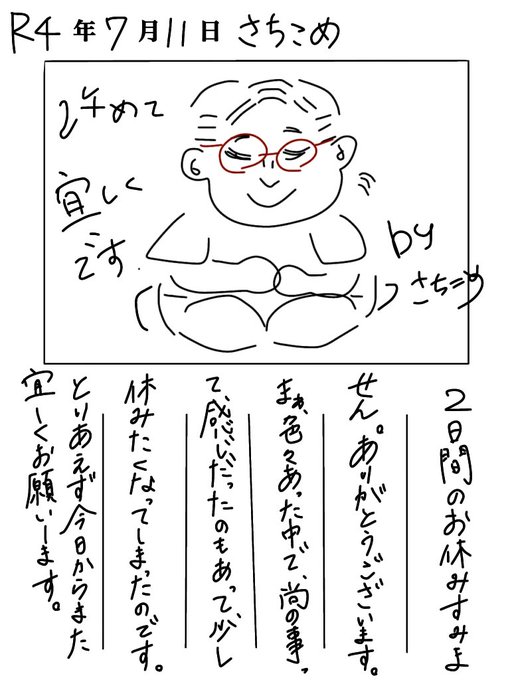 R4年7月11日 さちこめ
改めて
宜しく
です
by
さちこめ
2日間のお休みすみま
せん。ありがとうございます。
まぁ、色々あった中で、尚の事っ
て、感じだったのもあって、少し
休みたくなってしまったのです。
とりあえず今日からまた
宜しくお願いします。